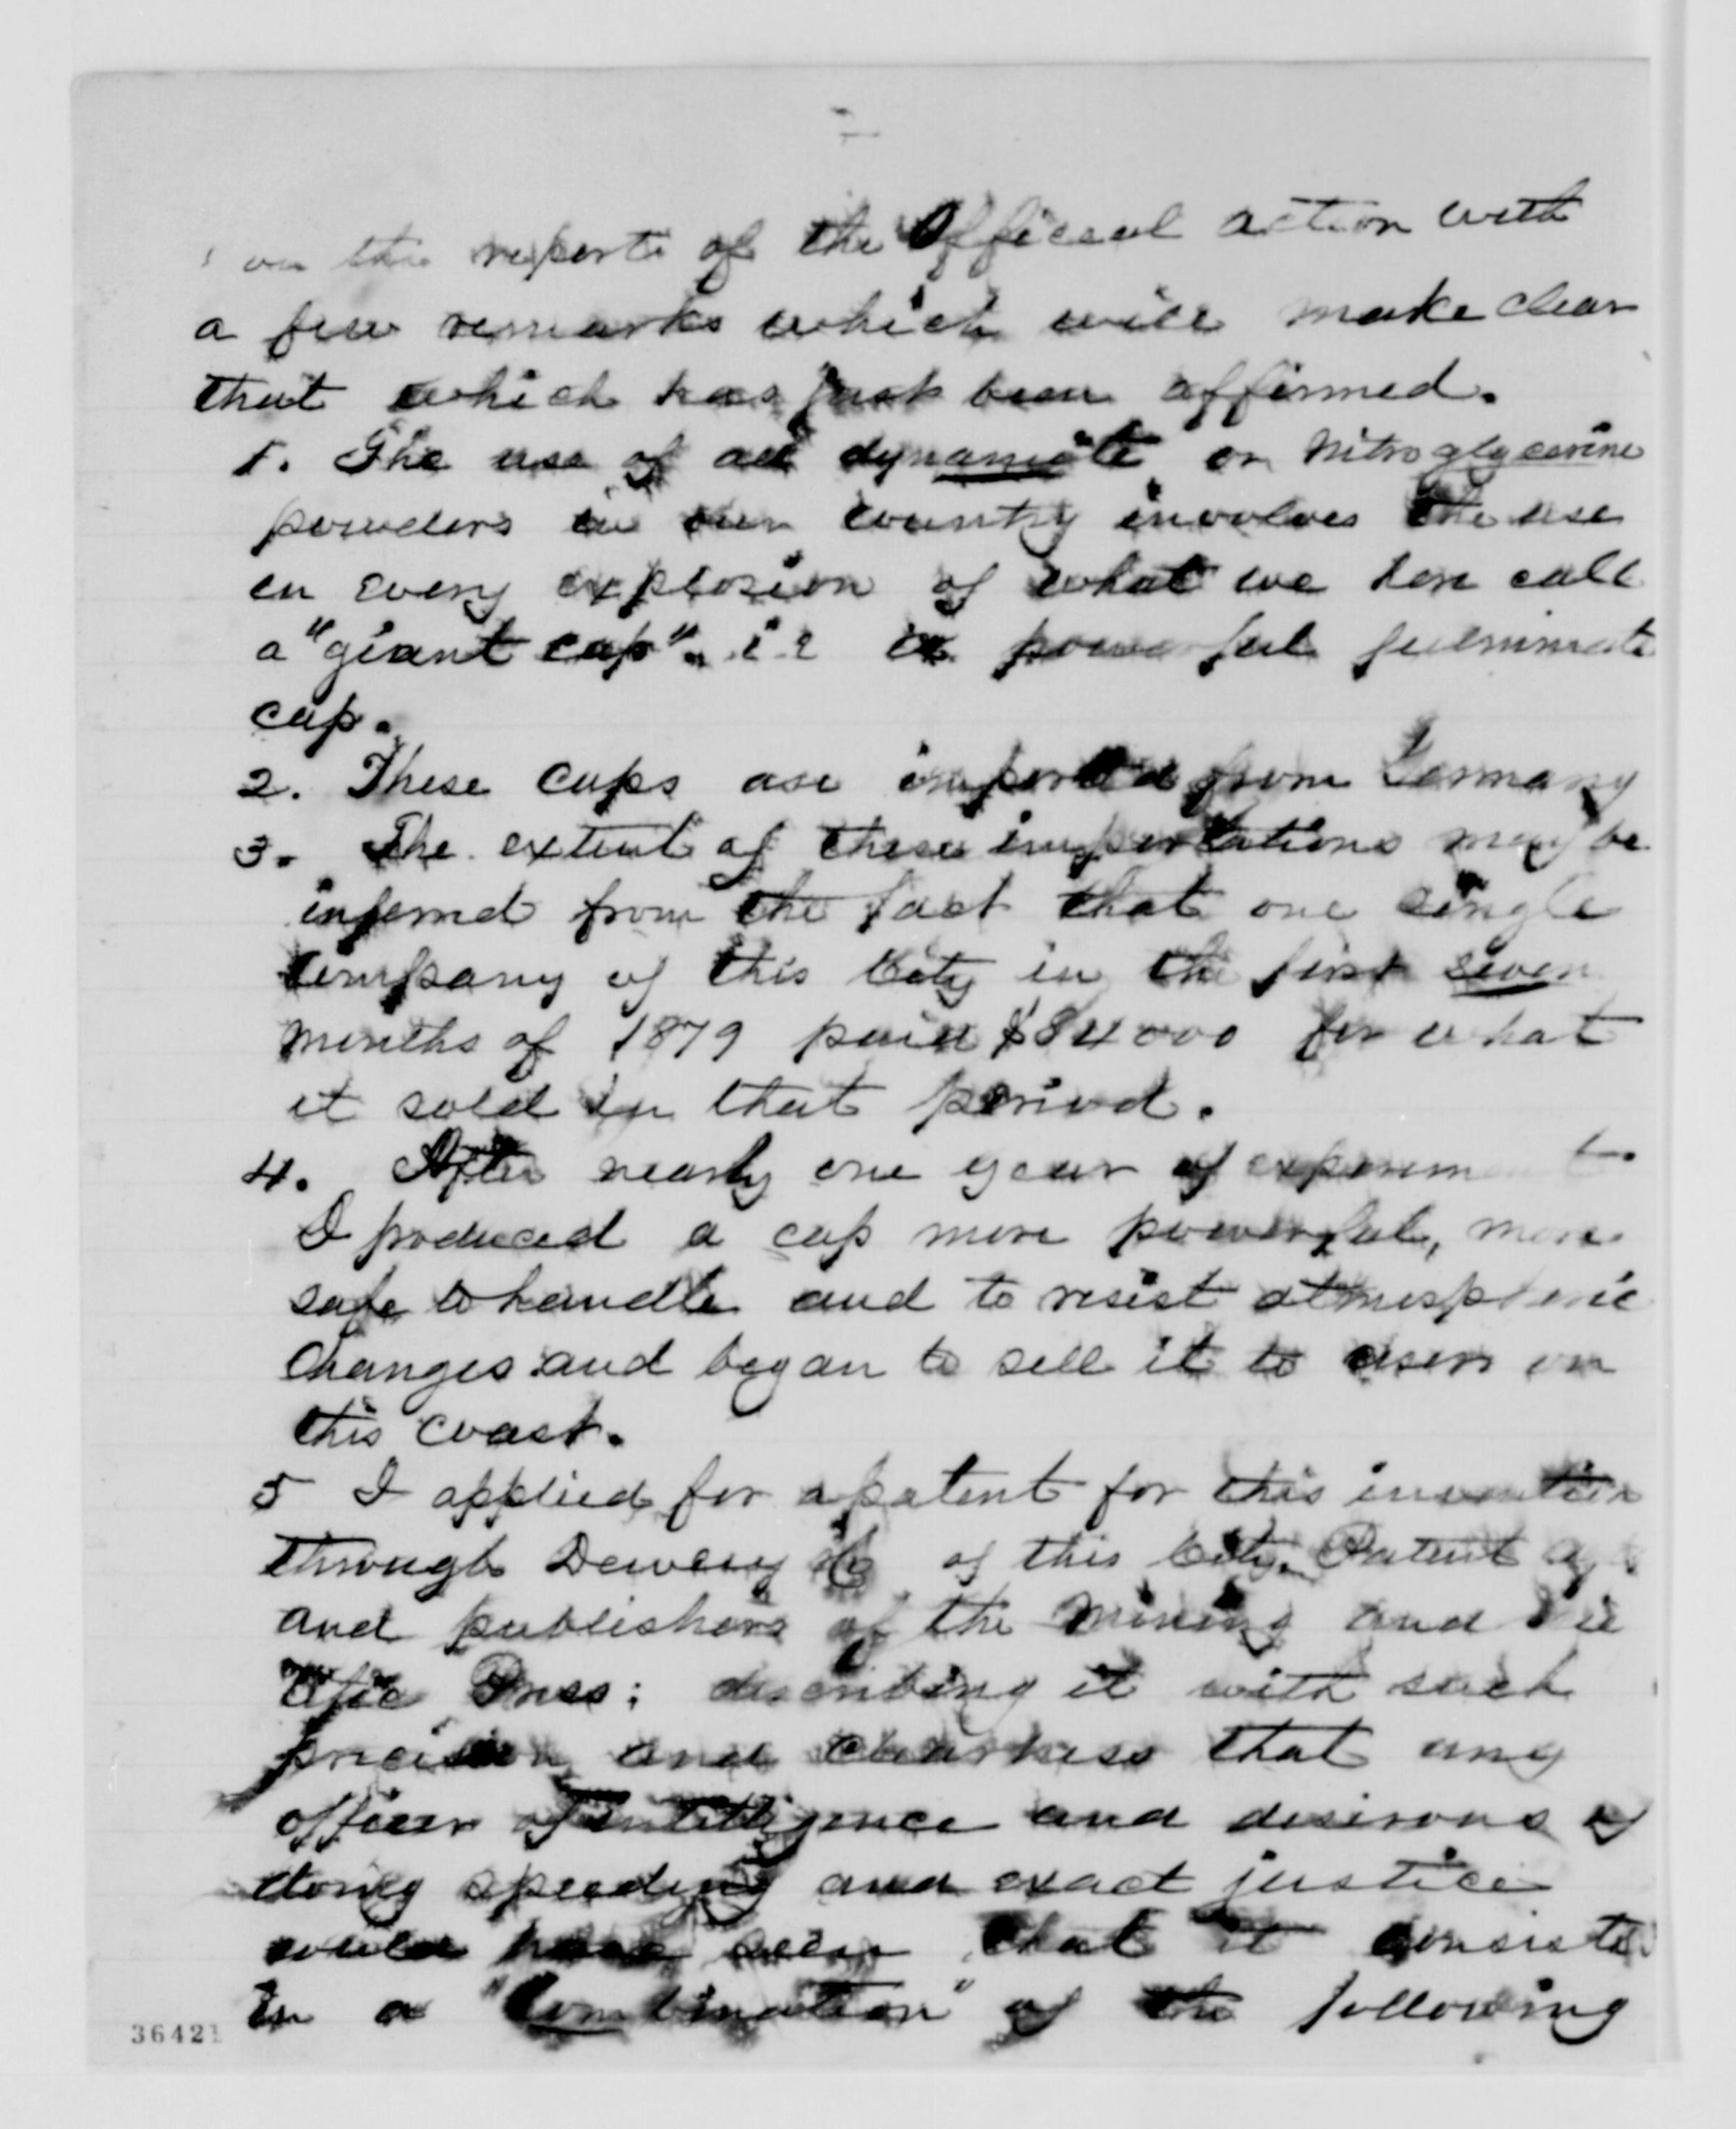 on the reports of the Official action with
a few remarks which will make clear
that which has just been affirmed.
1. The use of all dynamite or Nitroglycerine
powders in our country involves the use
in every explosion of what we here call
a "giant cap". i.e a powerful fulminate
cap.
2. These caps are imported from Germany
3. The extent of these importations may be
inferred from the fact that one single
Company of this City in the first seven
months of 1879 paid $84000 for what
it sold in that period.
4. After nearly one year of experiment
I produced a cap more powerful, more
safe to handle and to resist atmospheric
Changes and began to sell it to users on
this coast.
5 I applied for a patent for this invention
through Dewey & Co of this City. Patent
and publishers of the Mining and Scie
tific Press: describing it with such
precision and clearness that any
officer of intelligence and desirous of
doing speedy and exact justice
would have seen that it consisted
in a "Combination" of the following
36421